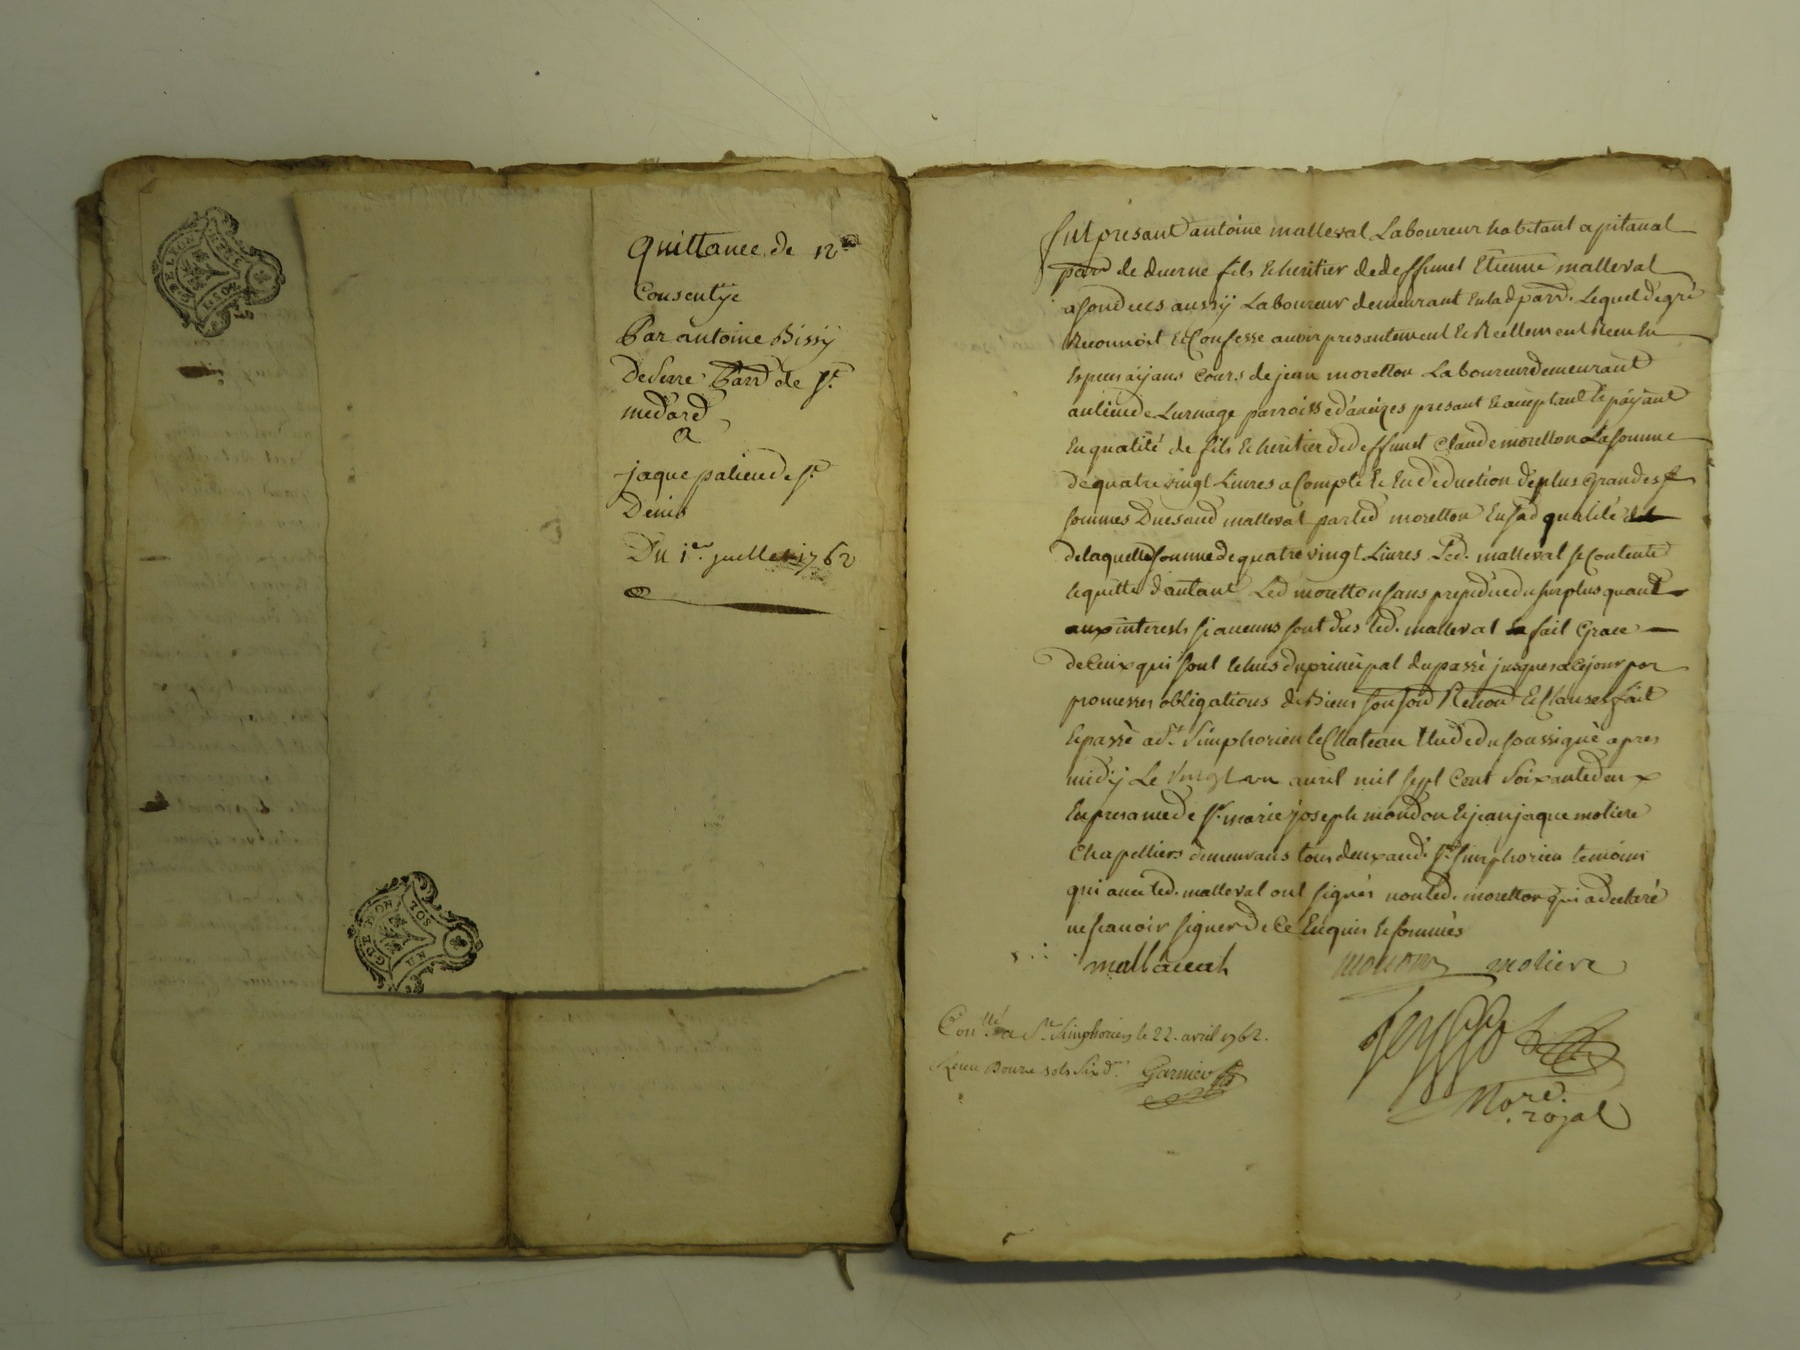 quittance de 12#
Consentye
Par antoine Bissy
De Serre Parr de St.
medard
a
jaque palien de St.
Denis
Du 1er. juillet 1762
fut présant antoine malleval Laboureur habitant a pitaval
parr de duerne fils & heritier de deffunct Etienne malleval
a son deces aussy Laboureur demeurant en lad parr. Lequel de gré
Reconnoit & Confesse avoir presantement & Reellement Receu en
Especes ayans Cours de jean moretton Laboureur demeurant
au lieu de Lurnage parroisse d'aveizes presant & acceptant & payant
En qualité de fils & heritier de deffunct Claude moretton La somme
de quatre vingt Livres a Compte & En déduction de plus Grandes
sommes Dues aud malleval par led moretton En sad qualité
de laquelle somme de quatre vingt Livres Led. malleval se Contente
& quitte d'autant Led moretton sans prejudice du surplus quant
aux interests si aucuns sont dus led. malleval fait Grace
de Ceux qui sont Echus du principal du passé jusques a Ce jour par
promesses obligations de Biens Renon & Clauses fait
& passé a St. Simphorien le Chateau Etude du soussigné apres
midy Le vingt un avril mil sept Cent Soixante deux
En presance de Sr. marie joseph mondon & jean jaque moliere
Chapelliers demeurans tous deux aud. St. Simphorien temoins
qui avec led. malleval ont signés non led. moretton qui a declaré
ne sçavoir signer de Ce Enquis & sommés
mallavah mondon moliere
Conllé a St. Simphorien le 22. avril 1762.
Receu Douze sols Six d. Garnier
Nore.
royal